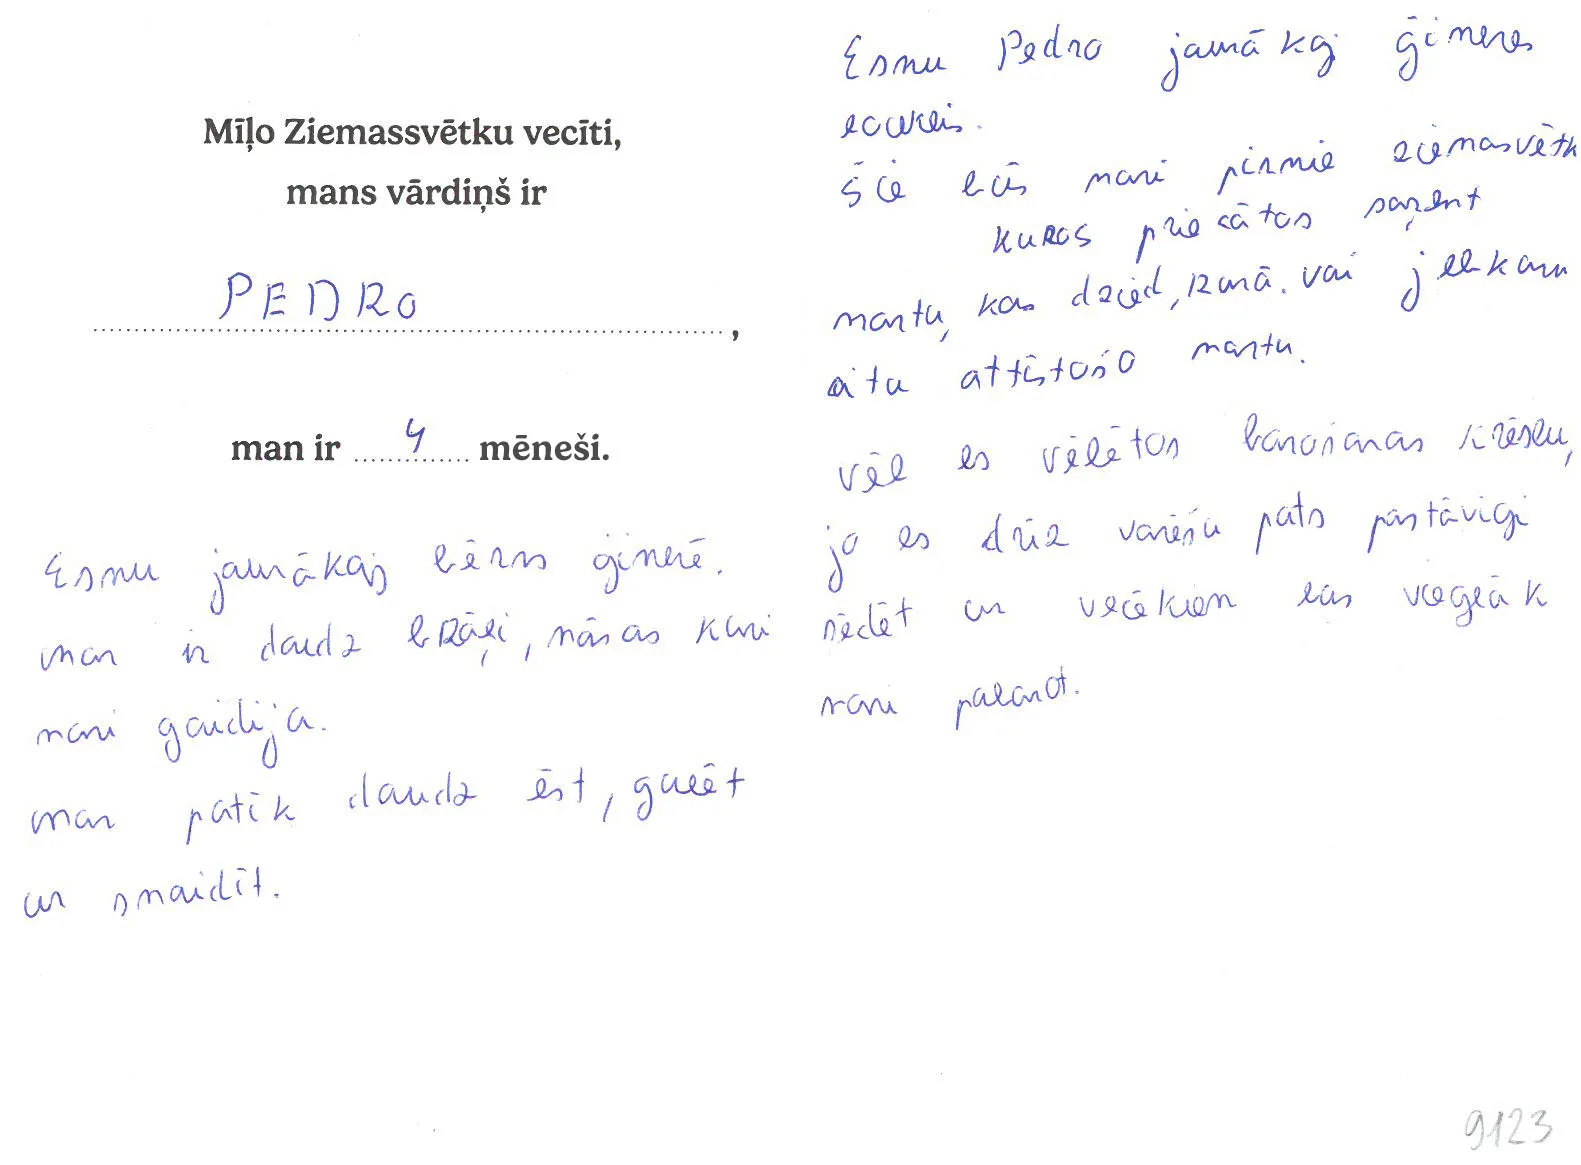 Mīļo Ziemassvētku vecīti,
mans vārdiņš ir
PEDRO,
man ir 4 mēneši.
Esmu jaunākaj bērns ģimenē.
man ir daudz brāļi, māsas kuri
mani gaidija.
man patīk daudz ēst, gulēt
un smaidīt.
Esmu Pedro jaunākaj ģimenes
loceklis.
šie būs mani pirmie ziemasvētk
kuros priecātos saņemt
mantu, kas dzied, runā. vai jebkanu
citu attīstošo mantu.
vēl es vēlētos barošanas krēslu,
jo es drīz varēšu pats pastāvigi
sēdēt un vecākiem būs vieglāk
mani pabarot.
9123